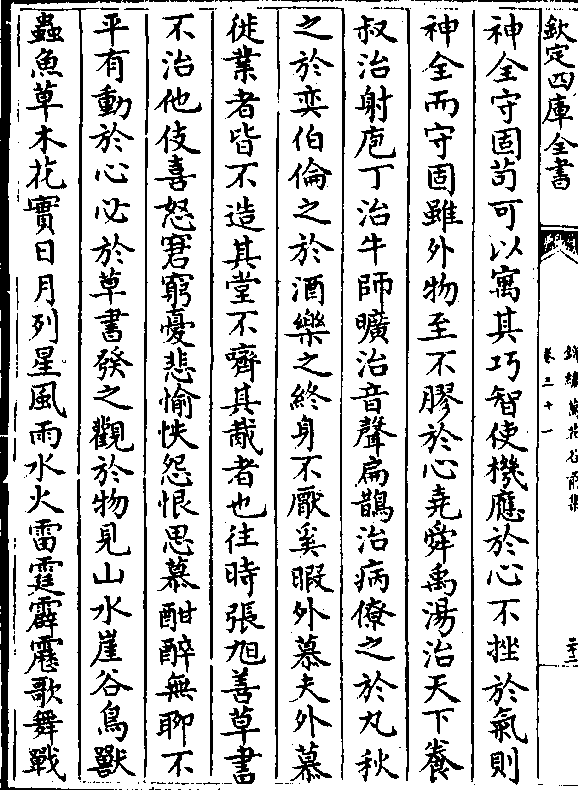 欽定四庫全書
卷三十一
神全守固苟可以寓其巧智使機應於心不挫於氣則
神全而守固雖外物至不膠於心堯舜禹湯治天下養
叔治射庖丁治牛師曠治音聲扁鵲治病僚之於丸秋
之於奕伯倫之於酒樂之終身不厭奚暇外慕夫外慕
徙業者皆不造其堂不嚌其胾者也往時張旭善草書
不治他伎喜怒窘窮憂悲愉怏怨恨思慕酣醉無聊不
平有動於心必於草書發之觀於物見山水崖谷鳥獸
蟲魚草木花實日月列星風雨水火雷霆霹靂歌舞戰